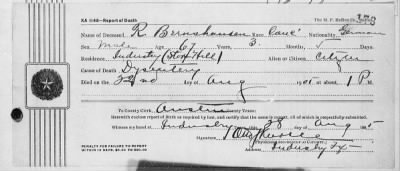 KA 1145-Report of Death
Name of Deceased R Bernshausen Race Cauc' Nationality German
Sex male Age 67 Years 3. Months Days
Residence Industry Alien or Citizen Citizen
Cause of Death Dysentery
Died on the 22nd day of Aug 1905 at 1 P M.
To County Clerk, Austin County, Texas:
Herewith enclose report of birth as required by law, and certify that the same is correct, all of which is respectfully submitted.
Witness my hand at Industry this 28 day of Aug 1905
Signature
Address Industry Tx
PENALTY FOR FAILURE TO REPORT